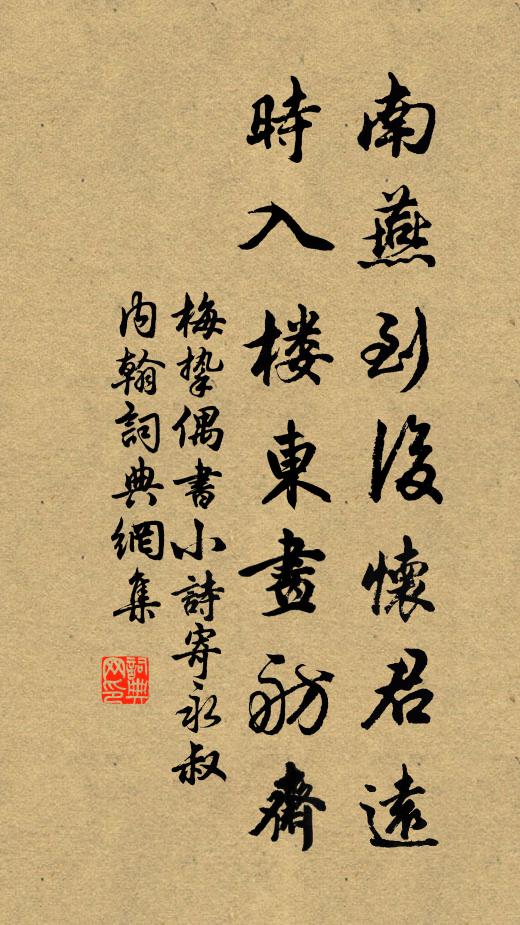 南燕到後懷君遠
時入楼東畫舫齋
梅摯偶書小詩寄永叔
内翰詞典網集
詞典网印